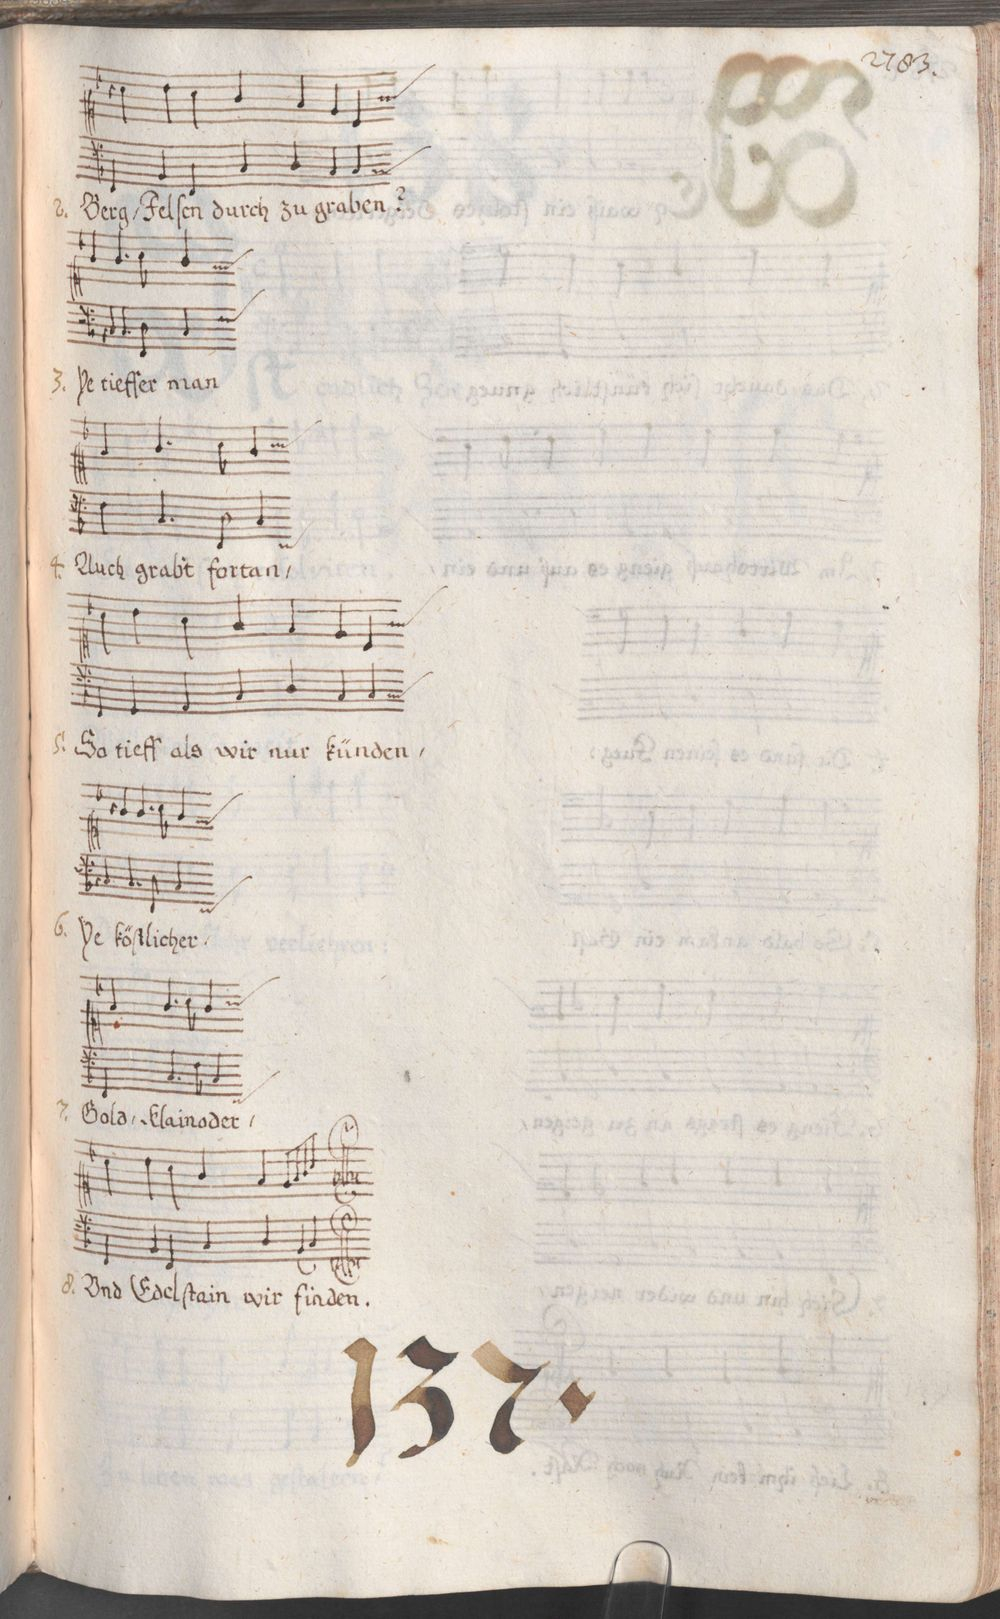 2783.
2. Berg/Felsen durch zu graben?
3. Ye tieffer man
4. Auch grabt fortan/
5. So tieff als wir nur künden/
6. Ye köstlicher/
7. Gold/Klainoder/
8. Vnd Edelstain wir finden.
137.